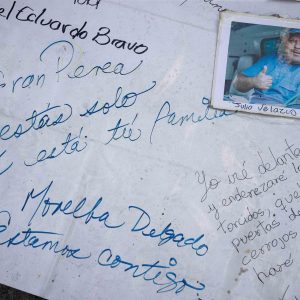 el Eduardo Bravo
Gran Perea
estás solo
está tú familia
Morelba Delgado
Estamos contigo.
Julio Velazco
Yo iré delante
y enderezaré lo
torcidos, que
puertas de
cerrojos
haré